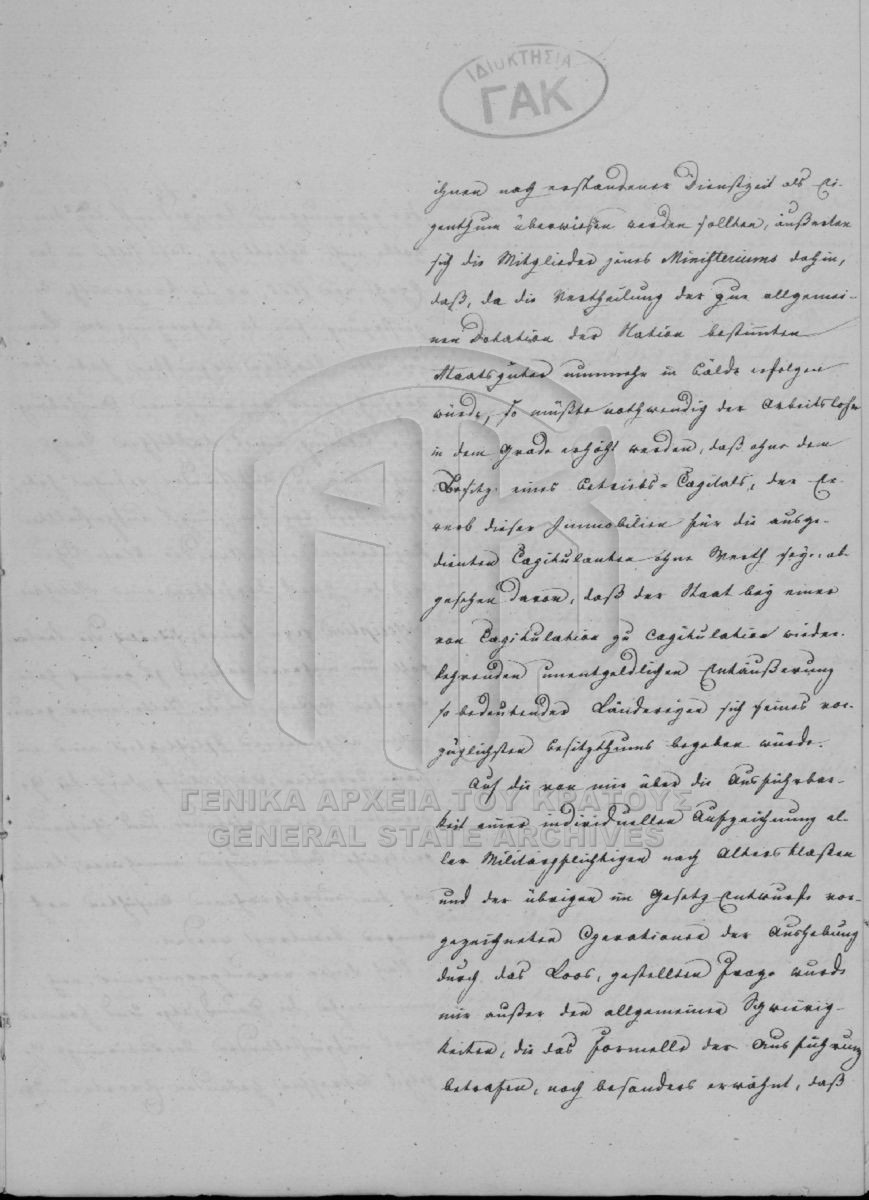 ΙΔΙΟΚΤΗΣΙΑ
ΓΑΚ
ihnen nach erstandener Dienstzeit als Ei-
genthum überwiesen werden sollten, äußerten
sich die Mitglieder jenes Ministeriums dahin,
daß, da die Vertheilung der zur allgemei-
nen Dotation der Nation bestimmten
Staatsgüter nunmehr in Bälde erfolgen
würde, so müßte nothwendig der Arbeitslohn
in dem Grade erhöht werden, daß ohne den
Besitz eines Betriebs-Capitals, der Er-
werb dieser Immobilien für die ausge-
dienten Capitulanten ohne Werth sey, ab-
gesehen davon, daß der Staat bey einer
von Capitulation zu Capitulation wieder-
kehrenden unentgeldlichen Entäußerung
so bedeutender Ländereyen sich seines vor-
züglichsten Besitzthums begeben würde.
Auf die von mir über die Ausführbar-
keit einer individuellen Aufzeichnung al-
ler Militärpflichtigen nach Altersklassen
und der übrigen im Gesetz-Entwurfe vor-
gezeichneten Operationen der Aushebung
durch das Loos, gestellten Frage wurde
mir außer den allgemeinen Schwierig-
keiten, die das Formelle der Ausführung
betrafen, noch besonders erwähnt, daß
ΓΕΝΙΚΑ ΑΡΧΕΙΑ ΤΟΥ ΚΡΑΤΟΥΣ
GENERAL STATE ARCHIVES